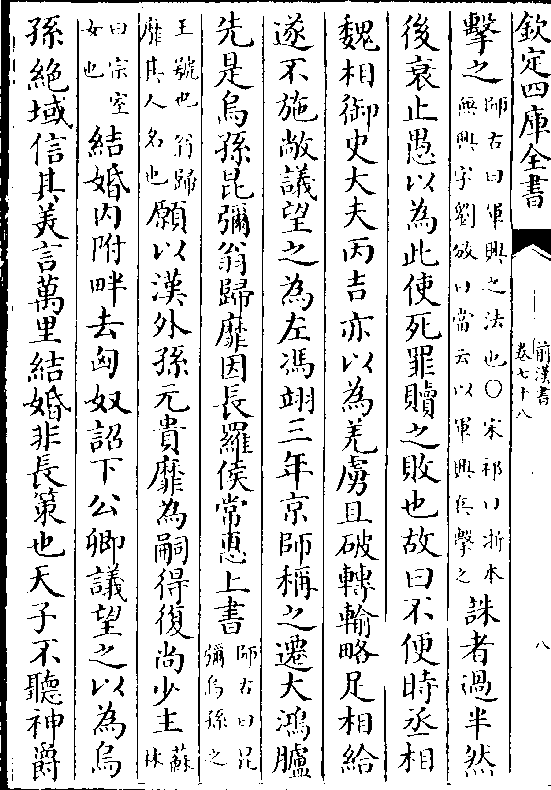 欽定四庫全書
前漢書
卷七十八
八
擊之師古曰軍興之法也〇宋祁曰浙本無興字劉攽曰當云以軍興兵擊之誅者過半然
後衰止愚以為此使死罪贖之敗也故曰不便時丞相
魏相御史大夫丙吉亦以為羌虜且破轉輸略足相給
遂不施敞議望之為左馮翊三年京師稱之遷大鴻臚
先是烏孫昆彌翁歸靡因長羅侯常惠上書師古曰昆彌烏孫之
王號也翁歸靡其人名也願以漢外孫元貴靡為嗣得復尚少主蘇林
曰宗室女也結婚内附畔去匈奴詔下公卿議望之以為烏
孫絶域信其美言萬里結婚非長策也天子不聽神爵